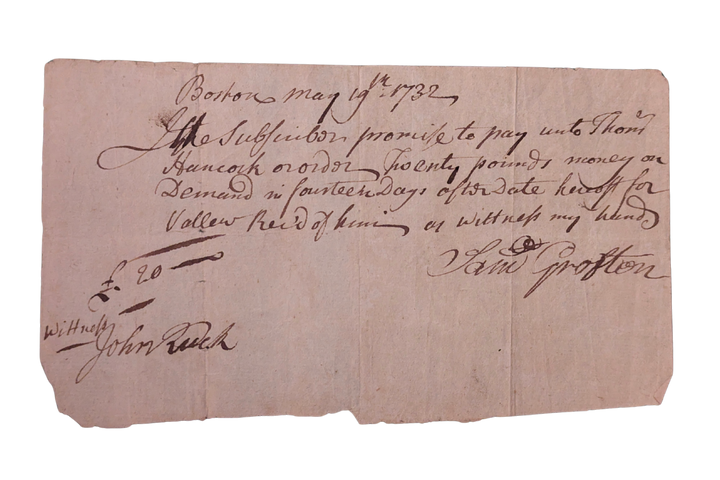 Boston May 19th 1732
I the Subscriber promise to pay unto Thoms
Hancock or order Twenty pounds money on
Demand in fourteen Days after Date hereoff for
Vallew Rec'd of him as wittness my hand
£. 20
Samll Groston
Wittness
John Ruck